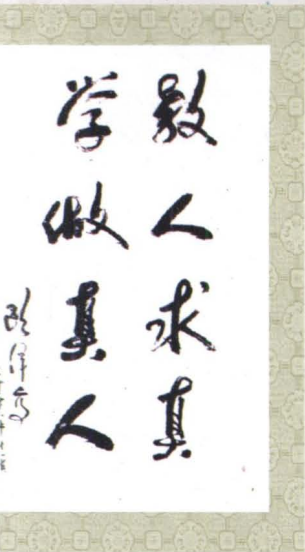 教人求真
学做真人